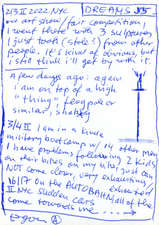 2/3 II 2022. NYC
DREAMS 55
an art show/fair competition,
I went there with 3 sculptures
I just took (stole) from other
people. It's kind of obvious, but
I still think i'll get by with it.
A few days ago: again
I am on top of a high
"thing", flagpole or
similar, shaking
3/4 II I am in a kinda
military bootcamp w/ 14 other men
I have problems following 2 kids
on their bikes on my bike, just can
NOT come closer, very exhausting
16/17 On the AUTOBAHN
II NYC sudden cars all of the
come towards me